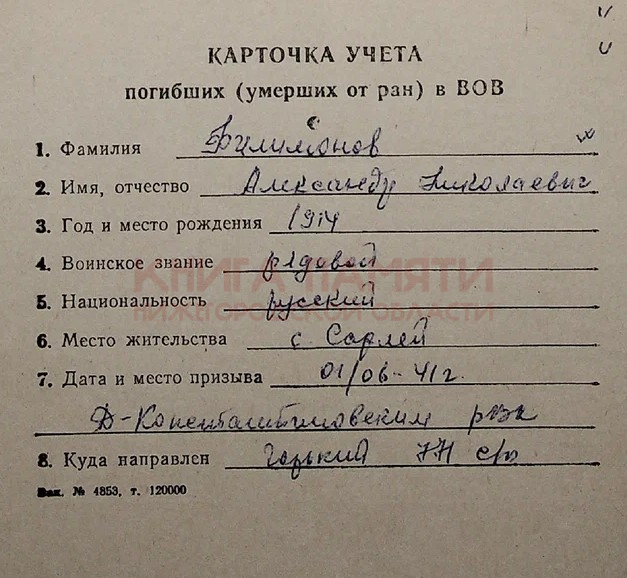 КАРТОЧКА УЧЕТА
погибших (умерших от ран) в ВОВ
1. Фамилия Филимонов
2. Имя, отчество Александр Николаевич
3. Год и место рождения 1914
4. Воинское звание рядовой
КНИГА ПАМЯТИ
5. Национальность русский
НИЖЕГОРОДСКОЙ ОБЛАСТИ
6. Место жительства с. Сарлей
7. Дата и место призыва 01/06-41г.
Д-Константиновским рвк
8. Куда направлен Горький
Зак. № 4853, т. 120000